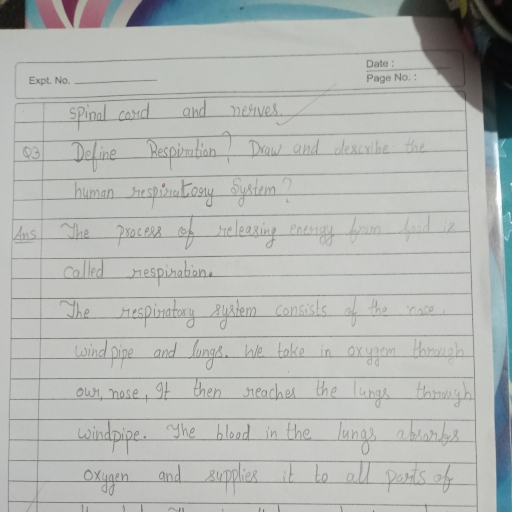 Date :
Expt. No.
Page No. :
spinal cord and nerves.
Q3 Define Respiration? Draw and describe the
human respiratory system?
Ans The process of releasing energy from food is
called respiration.
The respiratory system consists of the nose,
windpipe and lungs. We take in oxygen through
our, nose, It then reaches the lungs through
windpipe. The blood in the lungs absorbs
oxygen and supplies it to all parts of